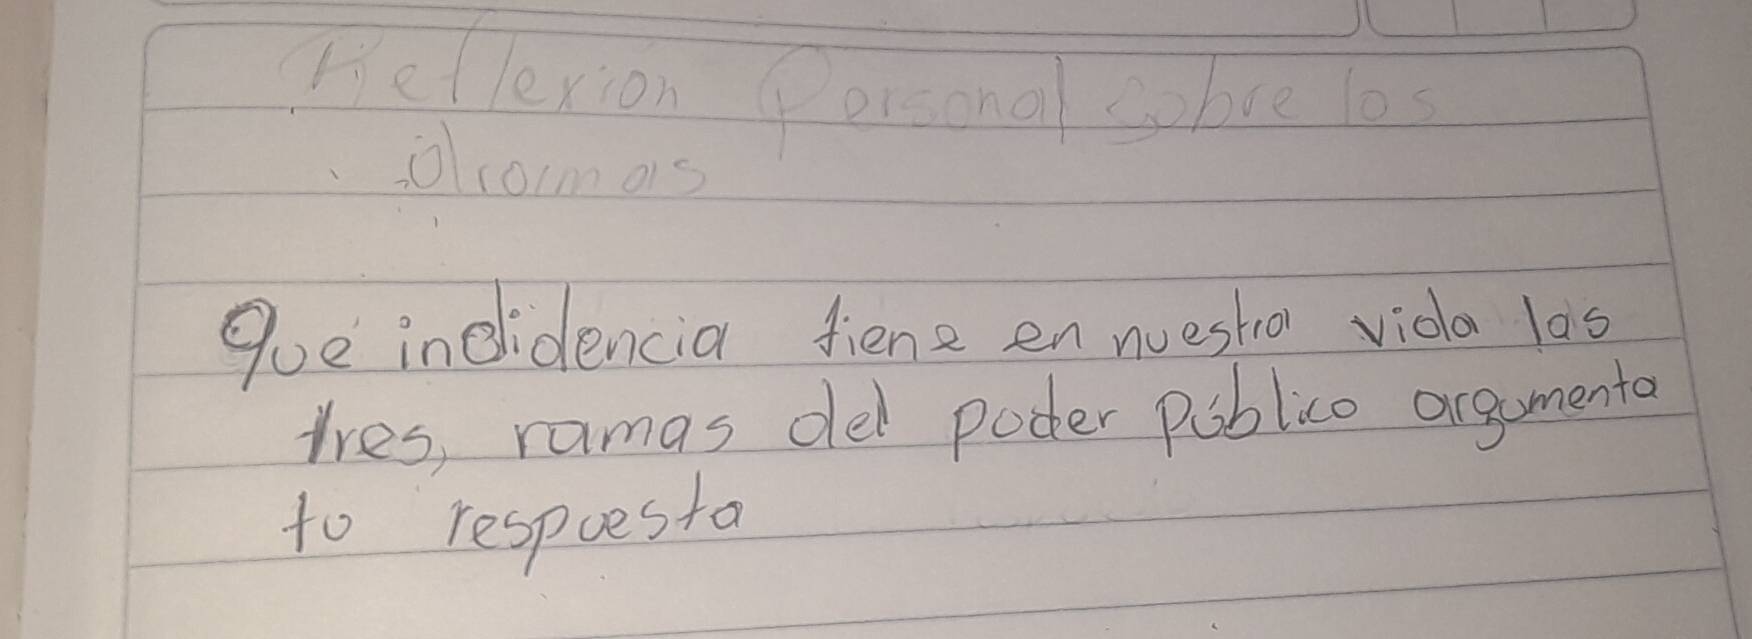 Reflexion Personal sobre los
que indidencia tiene en nuestra vida las
tres, ramas del poder público argumenta
tu respuesta